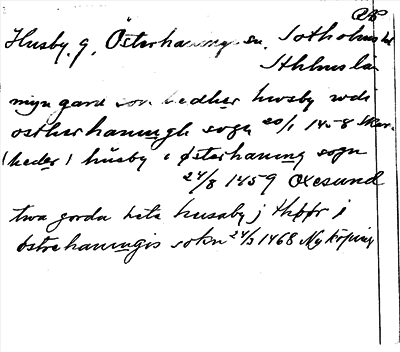 Husby, g, Österhaninge sn, Sotholms hd
Sthlms län
myn gard som hedher hwsby widi
ostherhaningh sogn 20/1 1458
heder husby i Østerhaning sogn
24/8 1459 Oxesund
twa gorda heta husaby j
østrehaningis sokn 24/3 1468 Nyköping